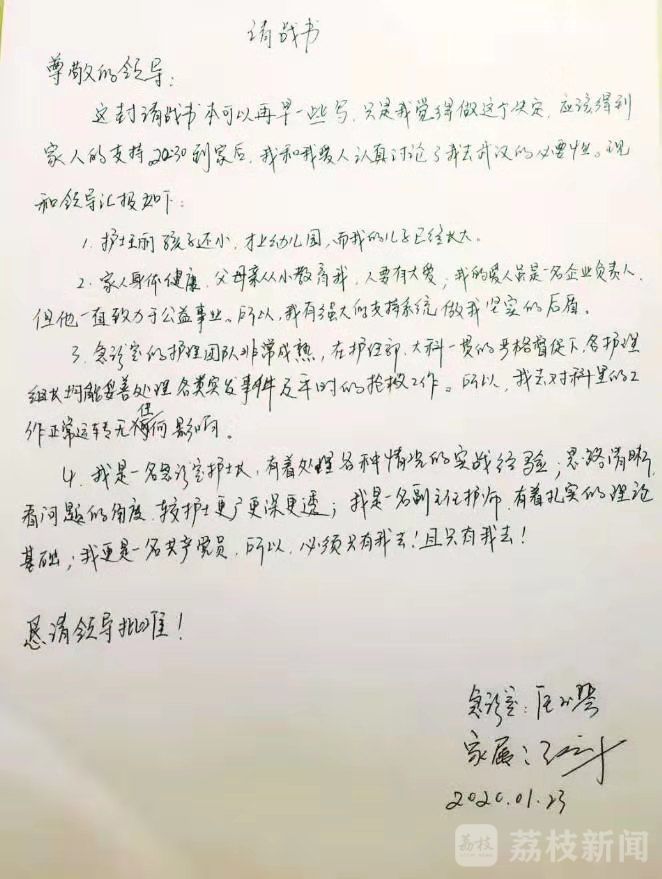 请战书
尊敬的领导：
这封请战书本可以再早一些写，只是我觉得做这个决定，应该得到
家人的支持，20:30到家后，我和我爱人认真讨论了我去武汉的必要性。现
和领导汇报如下：
1、护士丽孩子还小，才上幼儿园，而我的儿子已经长大。
2、家人身体健康，父母亲从小教育我，人要有大爱；我的爱人虽是一名企业负责人，
但他一直致力于公益事业。所以，我有强大的支持系统做我坚实的后盾。
3、急诊室的护理团队非常成熟，在护理部、大科一贯的严格督促下，各护理
组长均能妥善处理各类突发事件及平时的抢救工作。所以，我去对科里的工
作正常运转无任何影响。
4、我是一名急诊室护士长，有着处理各种情况的实战经验；思路清晰，
看问题的角度，较护士更广更深更透；我是一名副主任护师，有着扎实的理论
基础；我更是一名共产党员，所以，必须只有我去！且只有我去！
恳请领导批准！
急诊室：
家属：
2020.01.23
荔枝 荔枝新闻